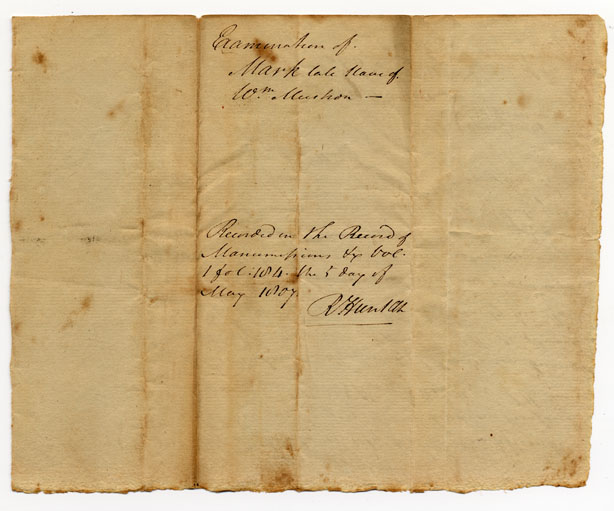 Examination of.
Mark late Slave of
Wm. Mushon —
Recorded in the Record of
Manumissions &c Vol.
1 fol. 184. the 5 day of
May 1807.
R Hunt Clk